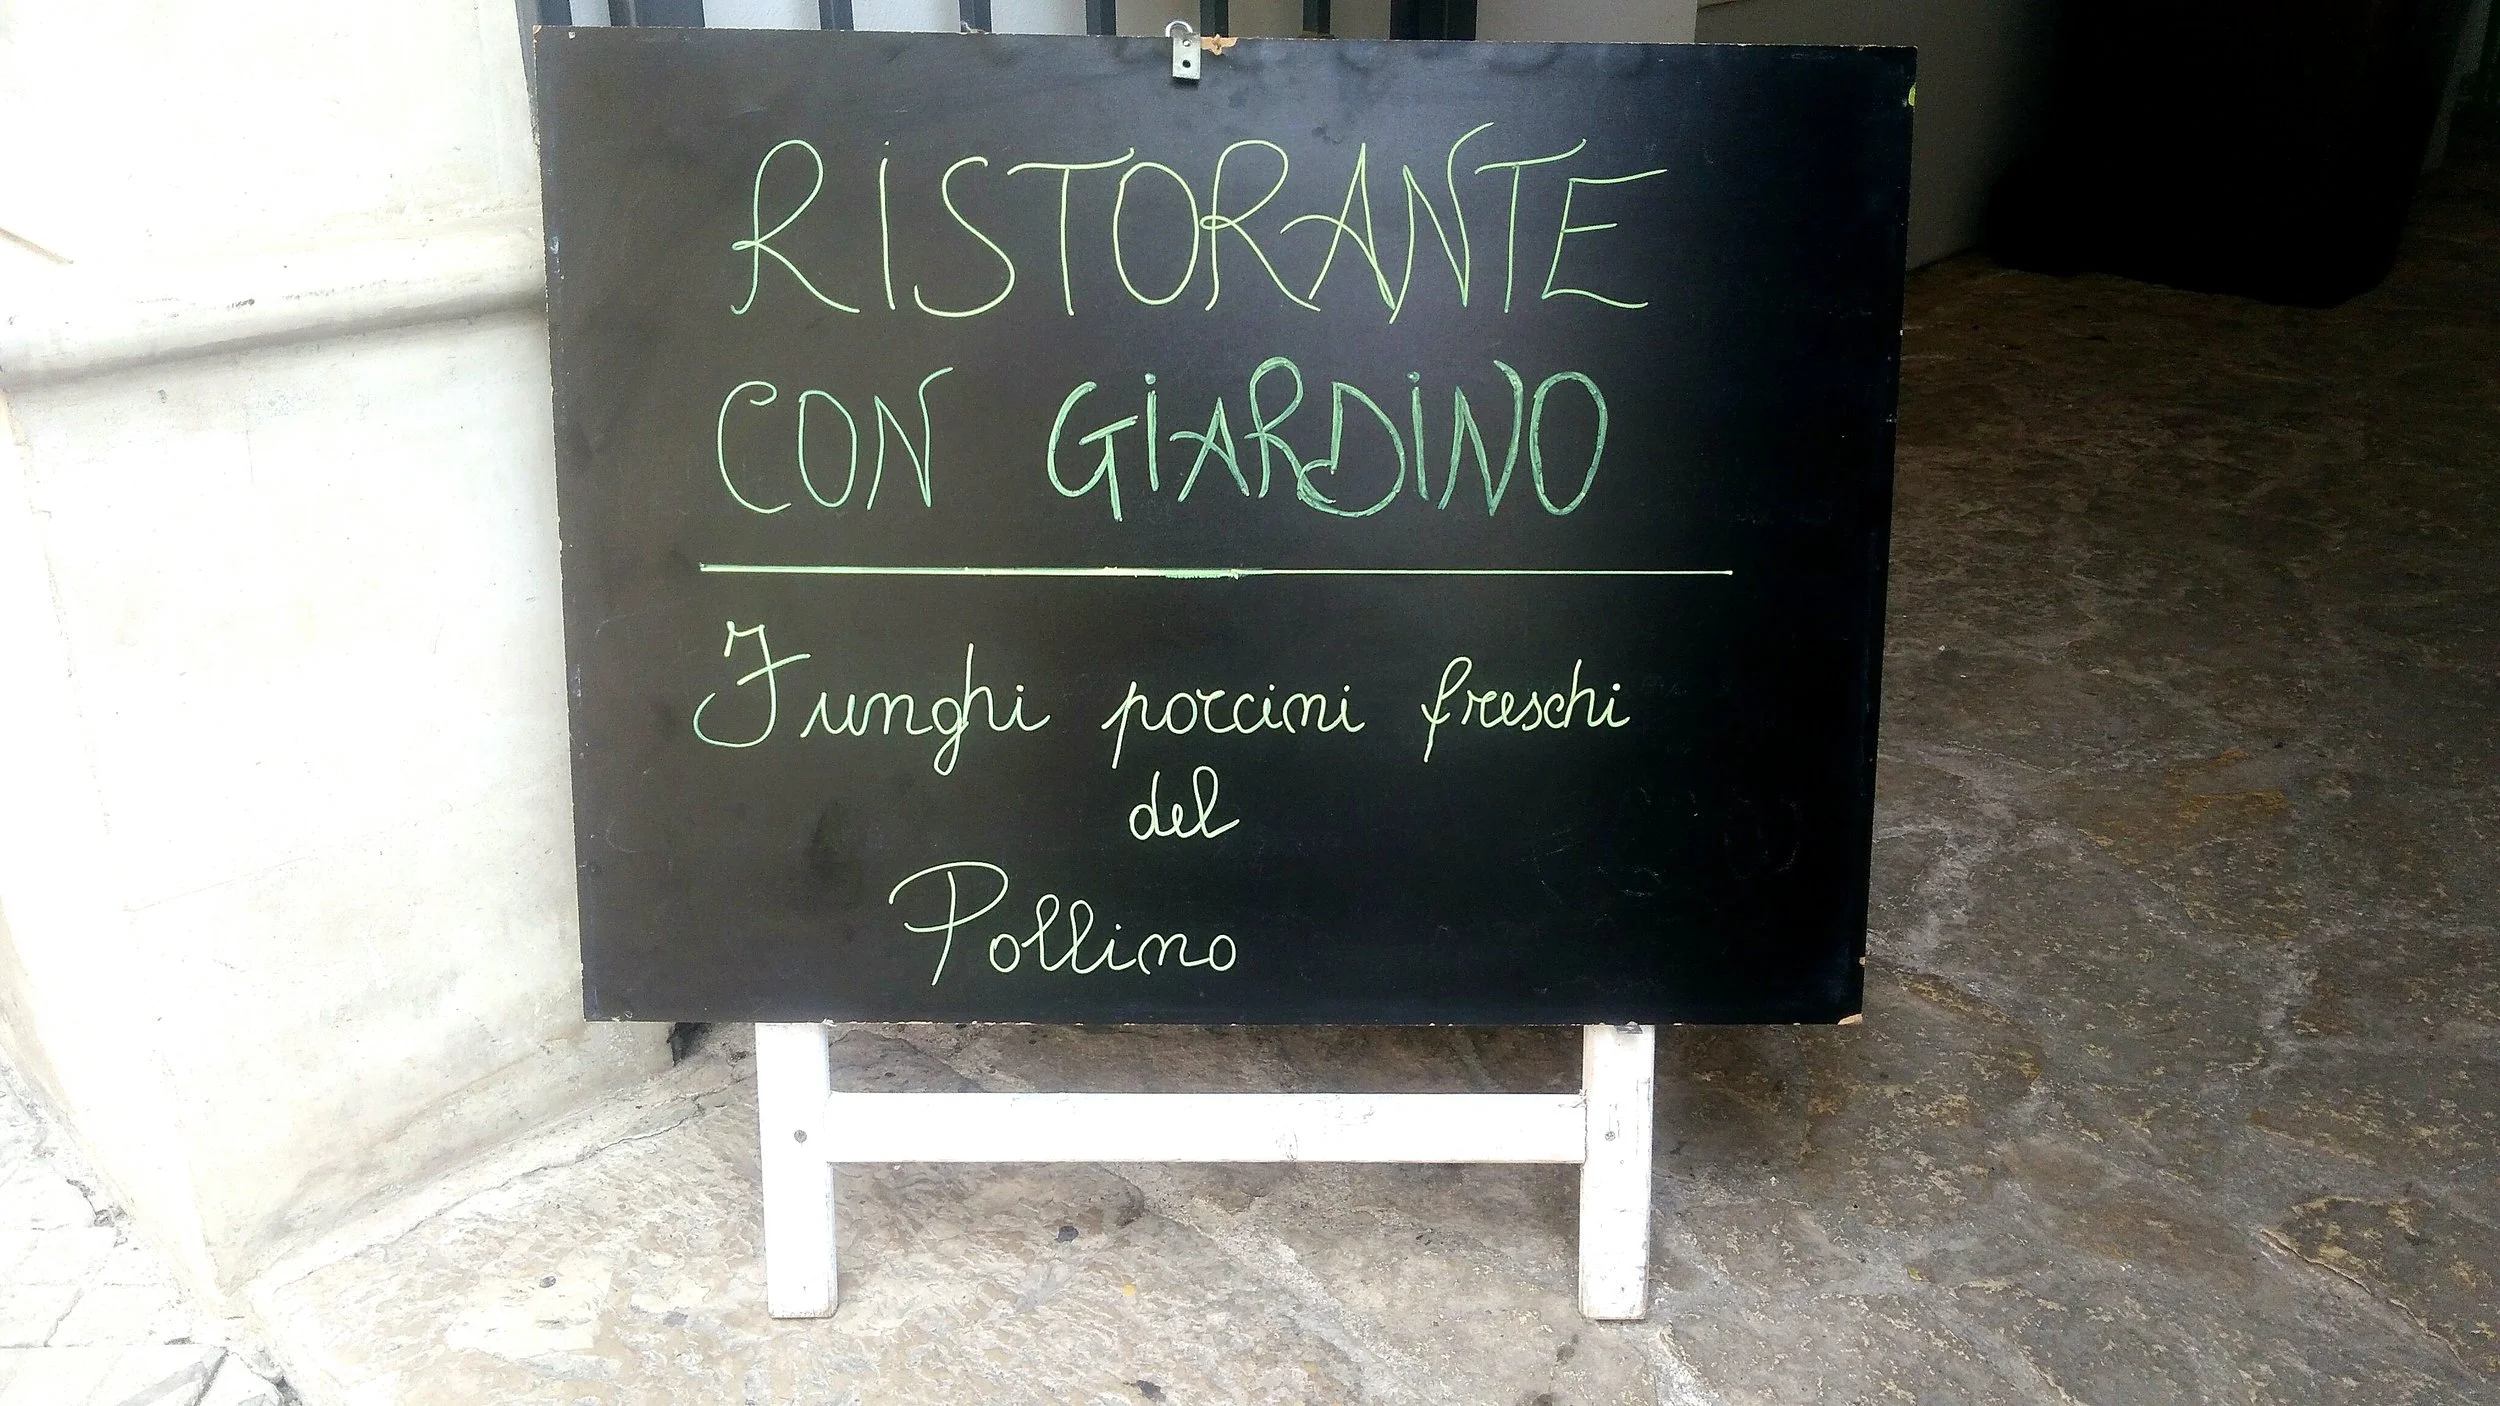 RISTORANTE
CON GIARDINO
Funghi porcini freschi
del
Pollino